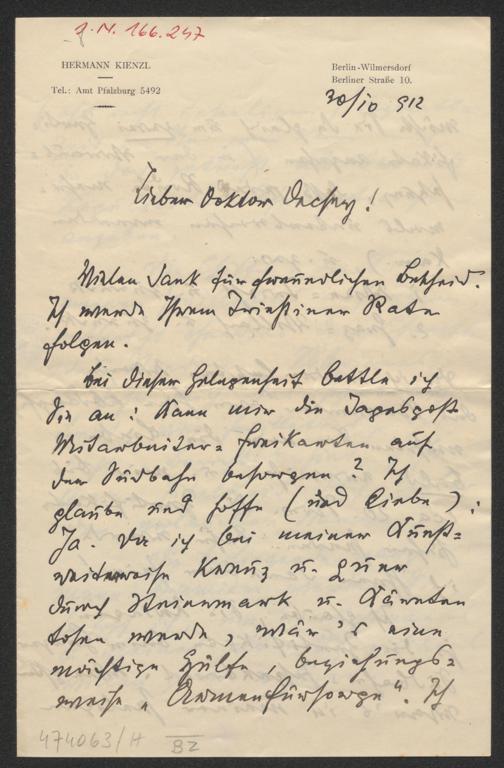 J. N. 166.247
HERMANN KIENZL
Tel.: Amt Pfalzburg 5492
Berlin-Wilmersdorf
Berliner Straße 10.
30/10 912
Lieber Doktor Decsey!
Vielen Dank für freundlichen Bescheid.
Ich werde Ihrem Triestiner Rate
folgen.
Bei dieser Gelegenheit bettle ich
Sie an: Kann mir die Tagespost
Mitarbeiter-Freikarten auf
der Südbahn besorgen? Ich
glaube und hoffe (und liebe):
Ja. Da ich bei meiner Kunst-
reiterweise Kreuz u. Quer
durch Steiermark u. Kärnten
tosen werde, wär's eine
mächtige Hülfe, beziehungs-
weise „Armenfürsorge". Ich
474063/H
BZ